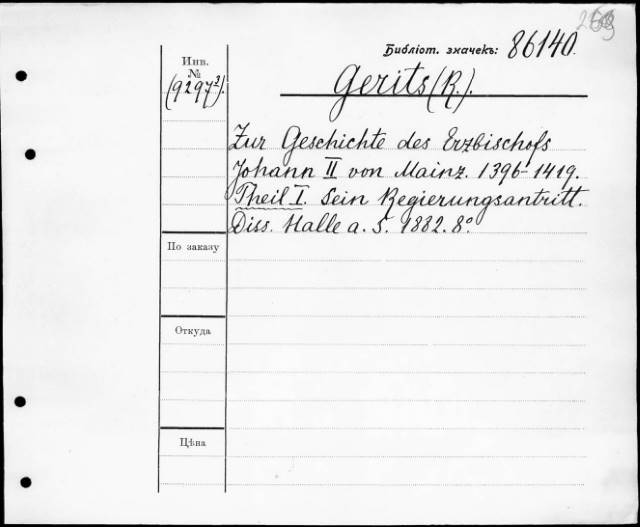 Библіот. значекъ: 86140.
Инв.
№
(9297²).
Gerits (R.).
Zur Geschichte des Erzbischofs
Johann II von Mainz. 1396-1419.
Theil I. Sein Regierungsantritt.
Diss. Halle a. S. 1882. 8º.
По заказу
Откуда
Цѣна